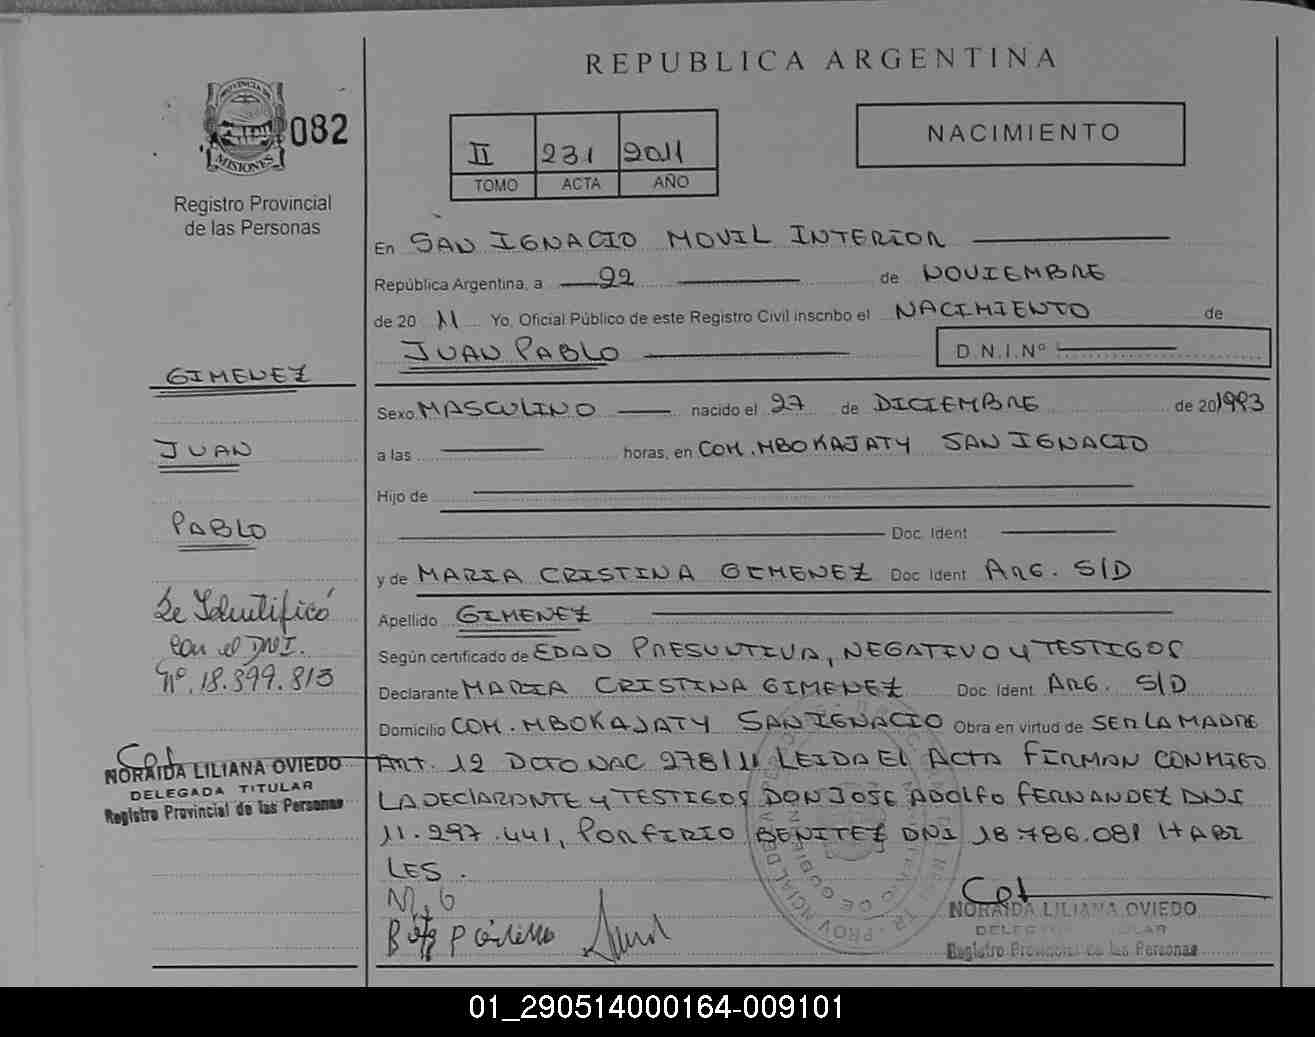 REPUBLICA ARGENTINA
PROVINCIA DE
MISIONES
082
Registro Provincial
de las Personas
II 231 2011
TOMO ACTA AÑO
NACIMIENTO
En SAN IGNACIO MOVIL INTERIOR
República Argentina, a 22 de NOVIEMBRE
de 20 11 Yo, Oficial Público de este Registro Civil inscribo el NACIMIENTO de
JUAN PABLO D.N.I.Nº
GIMENEZ
JUAN
PABLO
Se Identificó
con el DNI.
Nº.18.399.813
Sexo MASCULINO nacido el 27 de DICIEMBRE de 20/1993
a las horas, en COM. MBOKAJATY SAN IGNACIO
Hijo de
Doc. Ident
y de MARIA CRISTINA GIMENEZ Doc Ident ARG. S/D
Apellido GIMENEZ
Según certificado de EDAD PRESUNTIVA, NEGATIVO Y TESTIGOS
Declarante MARIA CRISTINA GIMENEZ Doc. Ident ARG. S/D
Domicilio COM. MBOKAJATY SAN IGNACIO Obra en virtud de SER LA MADRE
ART. 12 DCTO NAC 278/11 LEIDA EL ACTA FIRMAN CONMIGO
LA DECLARANTE Y TESTIGOS DON JOSE ADOLFO FERNANDEZ DNI
11.297.441, PORFIRIO BENITEZ DNI 18.786.081 HABI
LES.
NORAIDA LILIANA OVIEDO
DELEGADA TITULAR
Registro Provincial de las Personas
NORAIDA LILIANA OVIEDO
DELEGADA TITULAR
Registro Provincial de las Personas
01_290514000164-009101